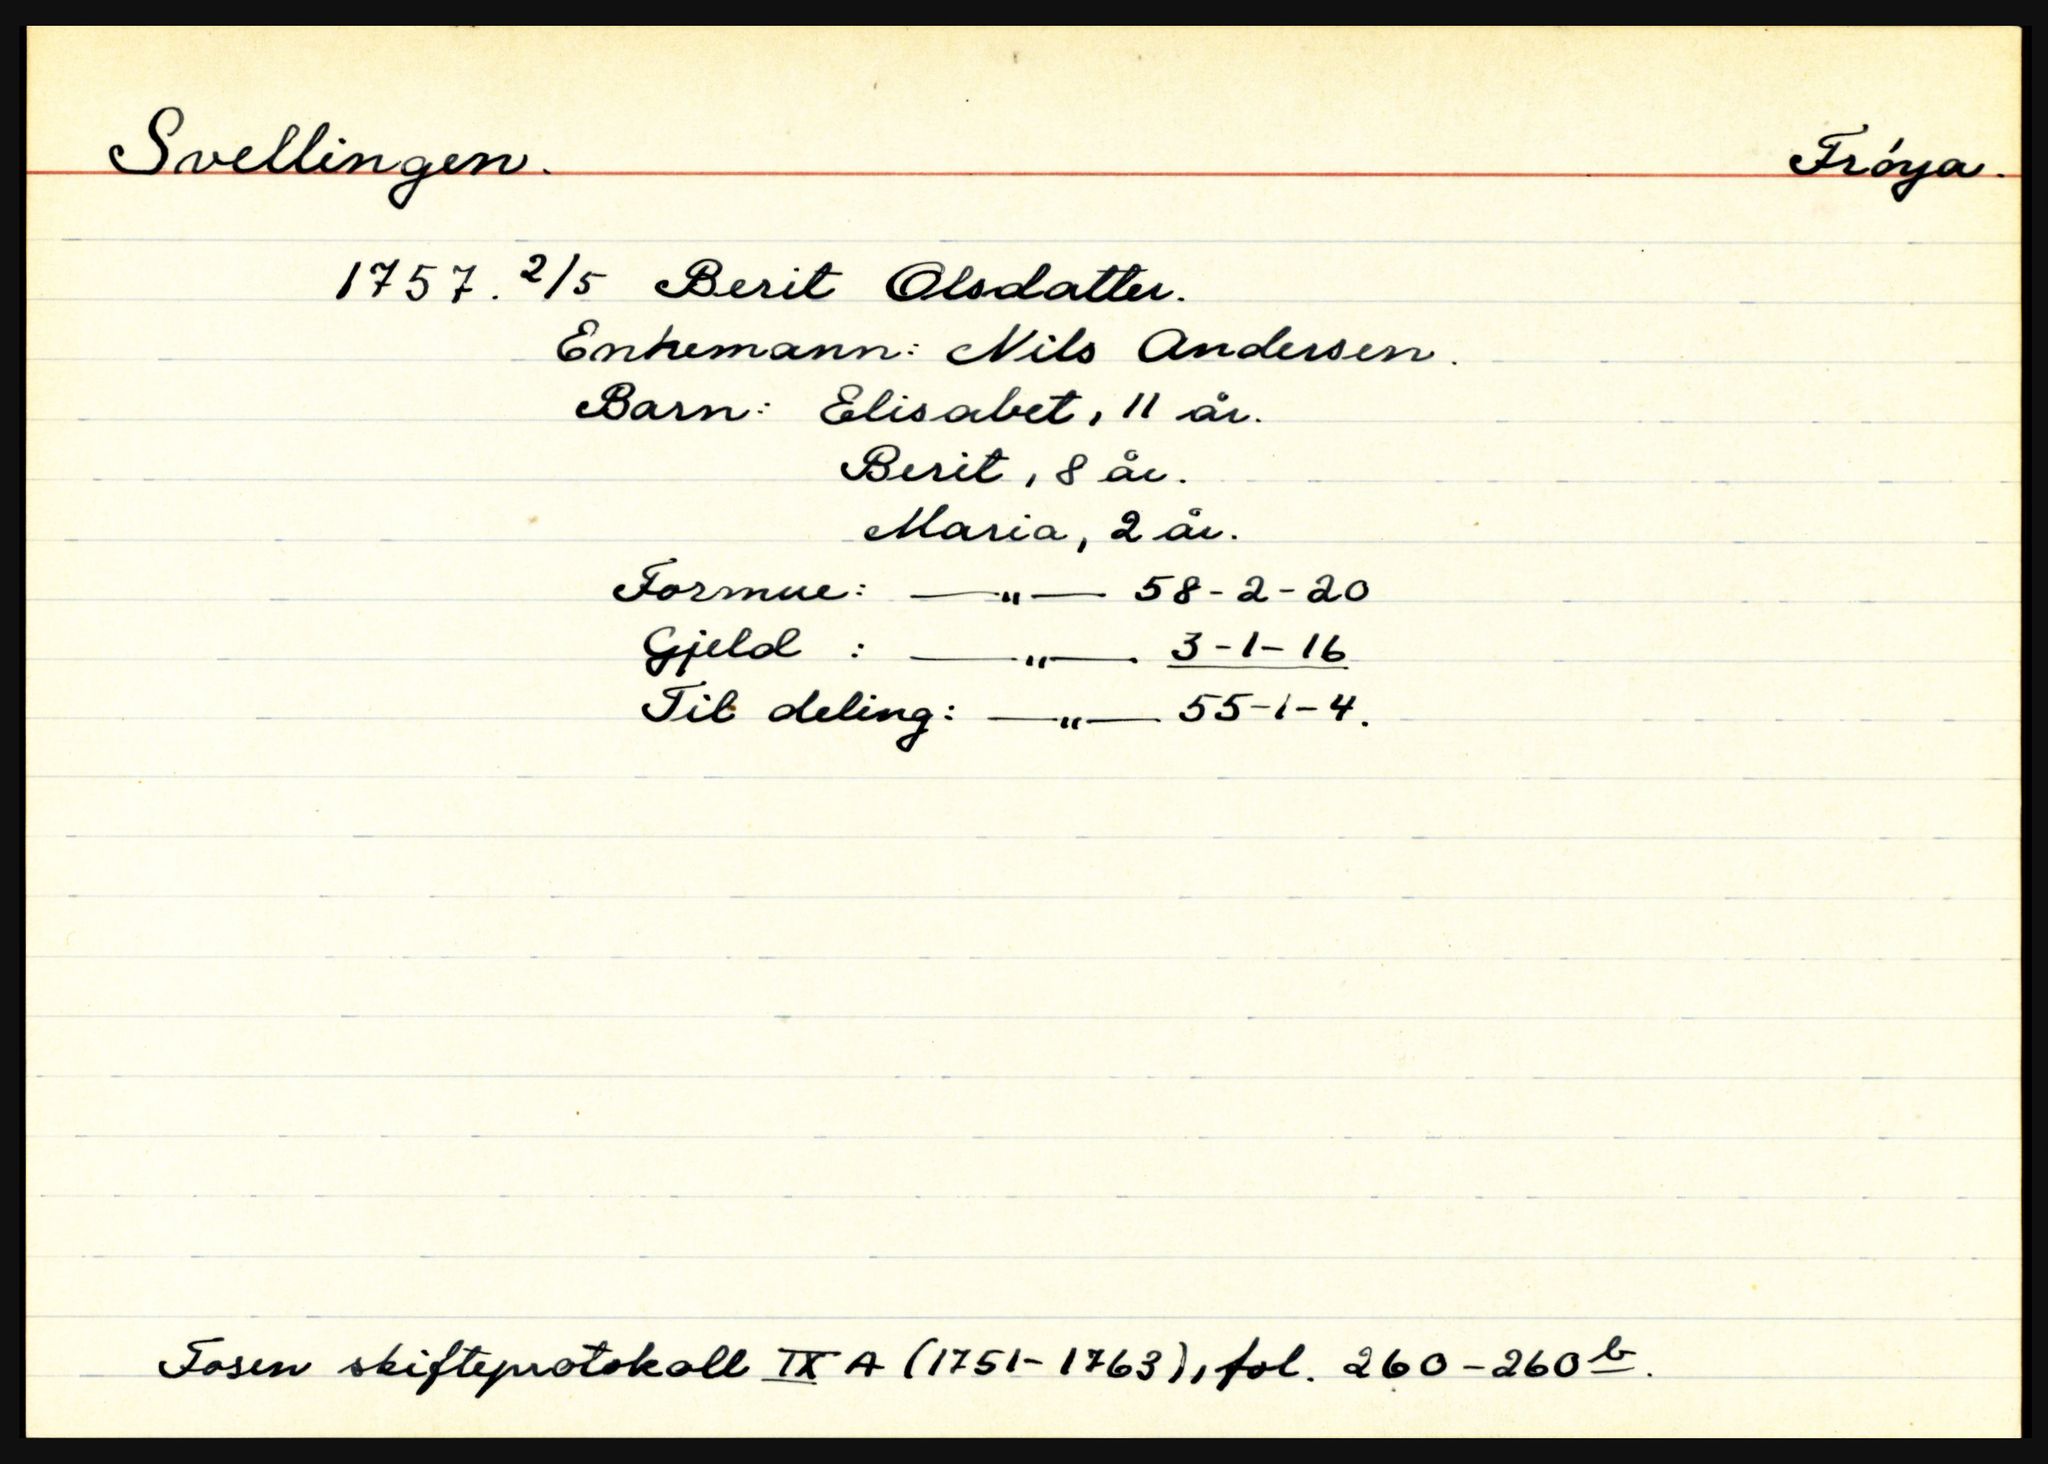 Svellingen. Fróya.
1757. 2/5 Berit Olsdatter.
Enkemann: Nils Andersen.
Barn: Elisabet, 11 år.
Berit, 8 år.
Maria, 2 år.
Formue: —"— 58-2-20
Gjeld : —"— 3-1-16
Til deling: —"— 55-1-4.
Fosen skifteprotokoll IX A (1751-1763), fol. 260-260b.